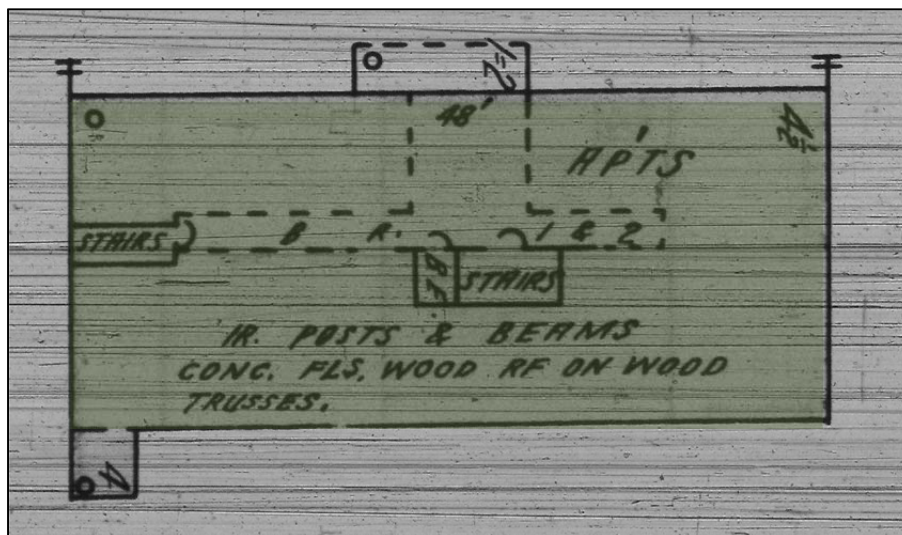 1=2
48'
4½
APTS
STAIRS
B R. 1 & 2
STAIRS
IR. POSTS & BEAMS
CONC. FLS. WOOD RF ON WOOD
TRUSSES.
4